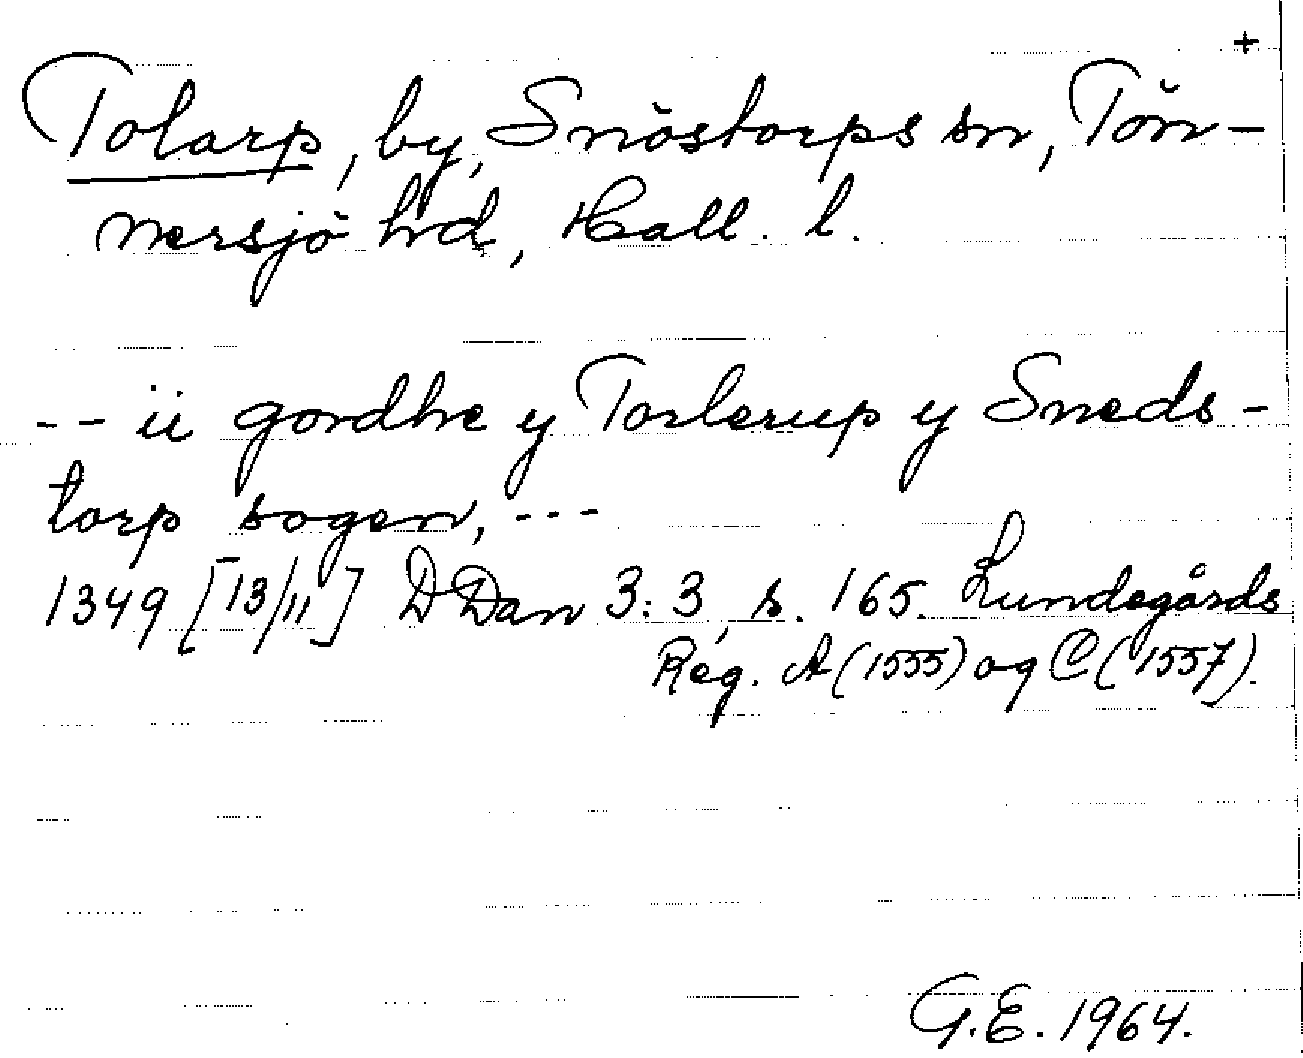 +
Tolarp, by, Snöstorps sn, Tön-
nersjö hd, Hall. l.
-- ii gordhe y Torlerup y Sneds-
torp sogen, ---
1349 [13/11] DDan 3:3, s. 165. Lundegårds
Reg. A (1555) og C (1557).
G.E. 1964.